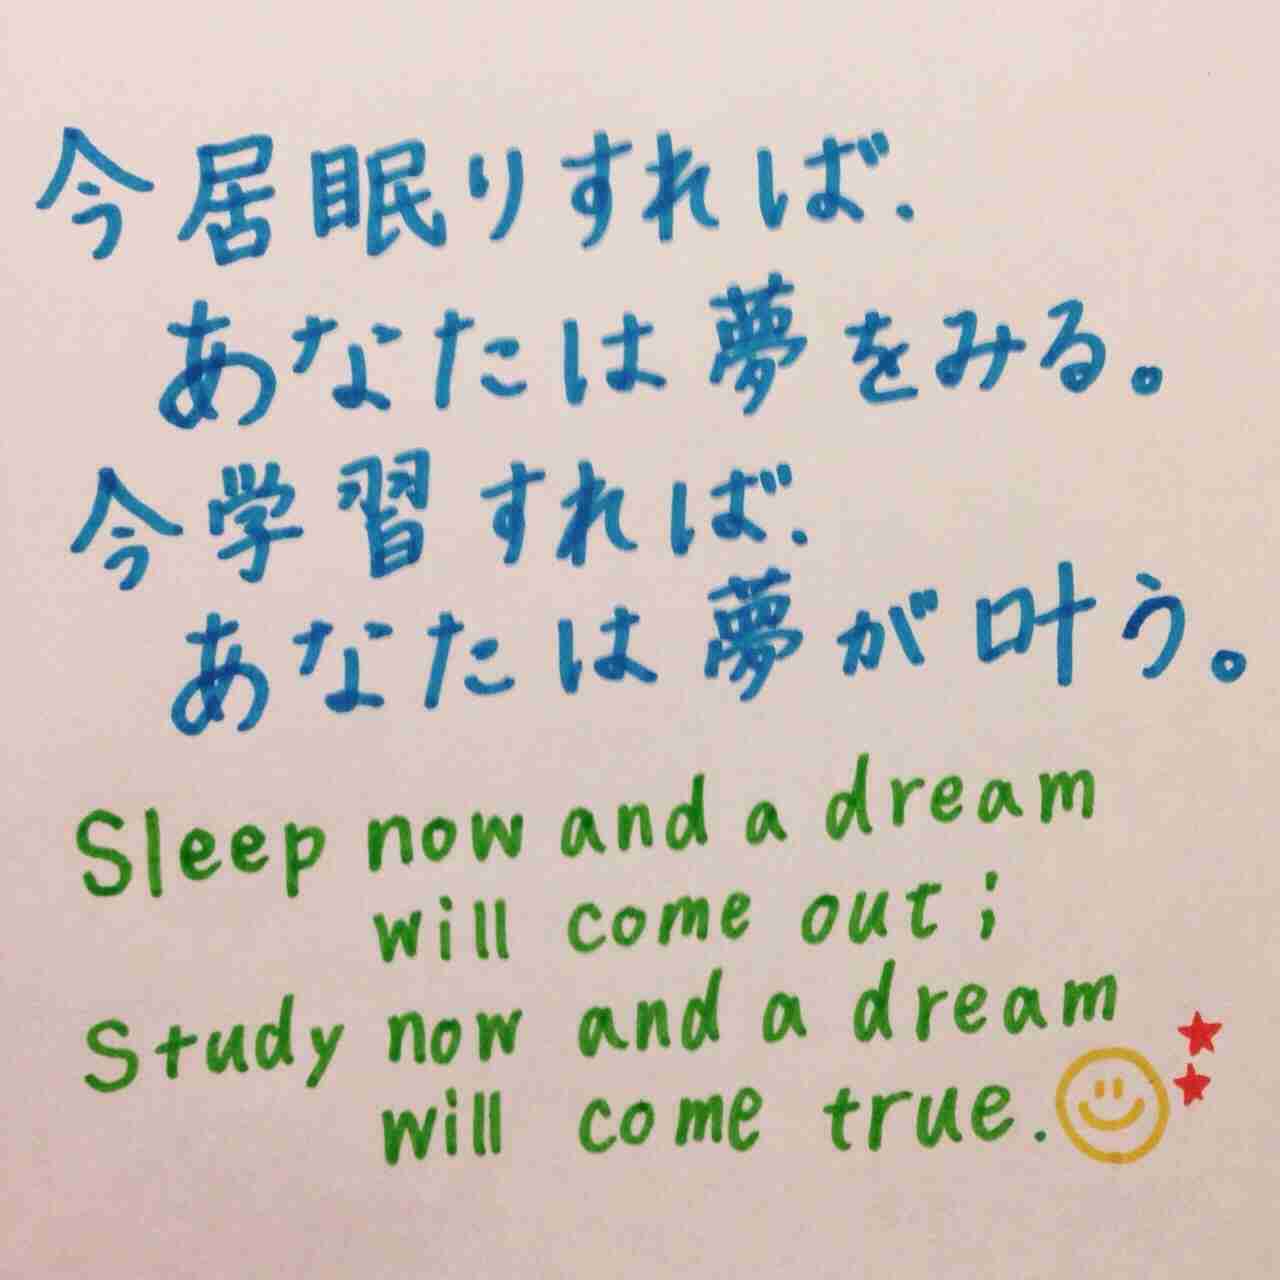 今居眠りすれば、
あなたは夢をみる。
今学習すれば、
あなたは夢が叶う。
Sleep now and a dream
will come out;
Study now and a dream
will come true.